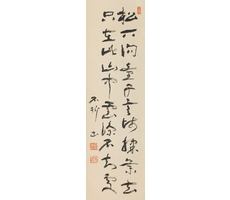 松下問童子言師採藥去
只在此山中雲深不知處
不折書